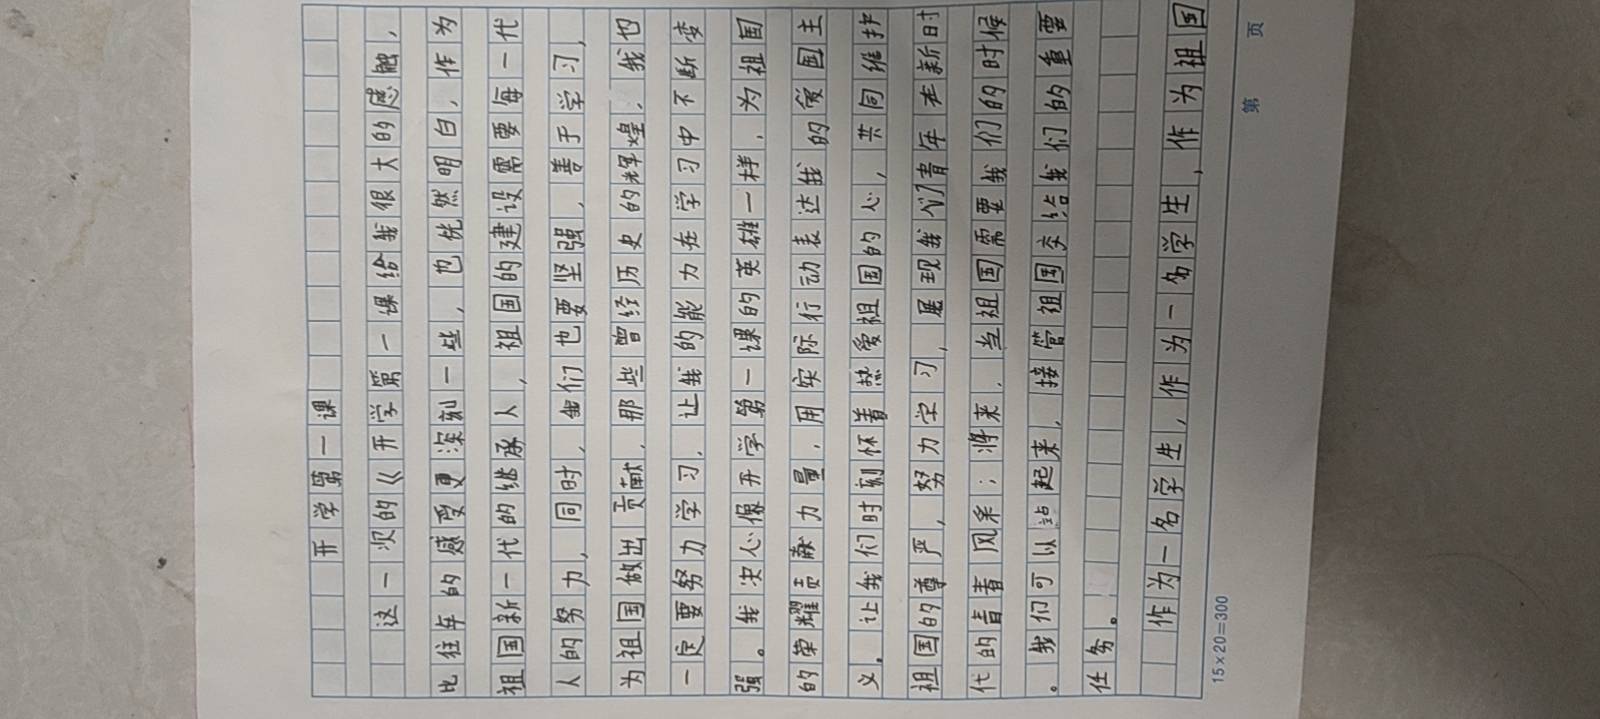 开学第一课
这一次的《开学第一课给我很大的感触，
比往年的感受更深刻一些，也恍然明白，作为
祖国新一代的继承人，祖国的建设需要每一代
人的努力，同时，我们也要坚强，善于学习，
为祖国做出贡献，那些曾经历史的辉煌，我也
一定要努力学习，让我的能力在学习中不断变
强。我决心像开学第一课的英雄一样，为祖国
的荣耀贡献力量，用实际行动表达我的爱国主
义，让我们时刻怀着热爱祖国的心，共同维护
祖国的尊严，努力学习，展现我们青年才新时
代的青春风采；将来，当祖国需要我们的时候
。我们可以站起来，接管祖国交给我们的重要
任务。
作为一名学生，作为一名学生，作为祖国
15×20=300
第 页